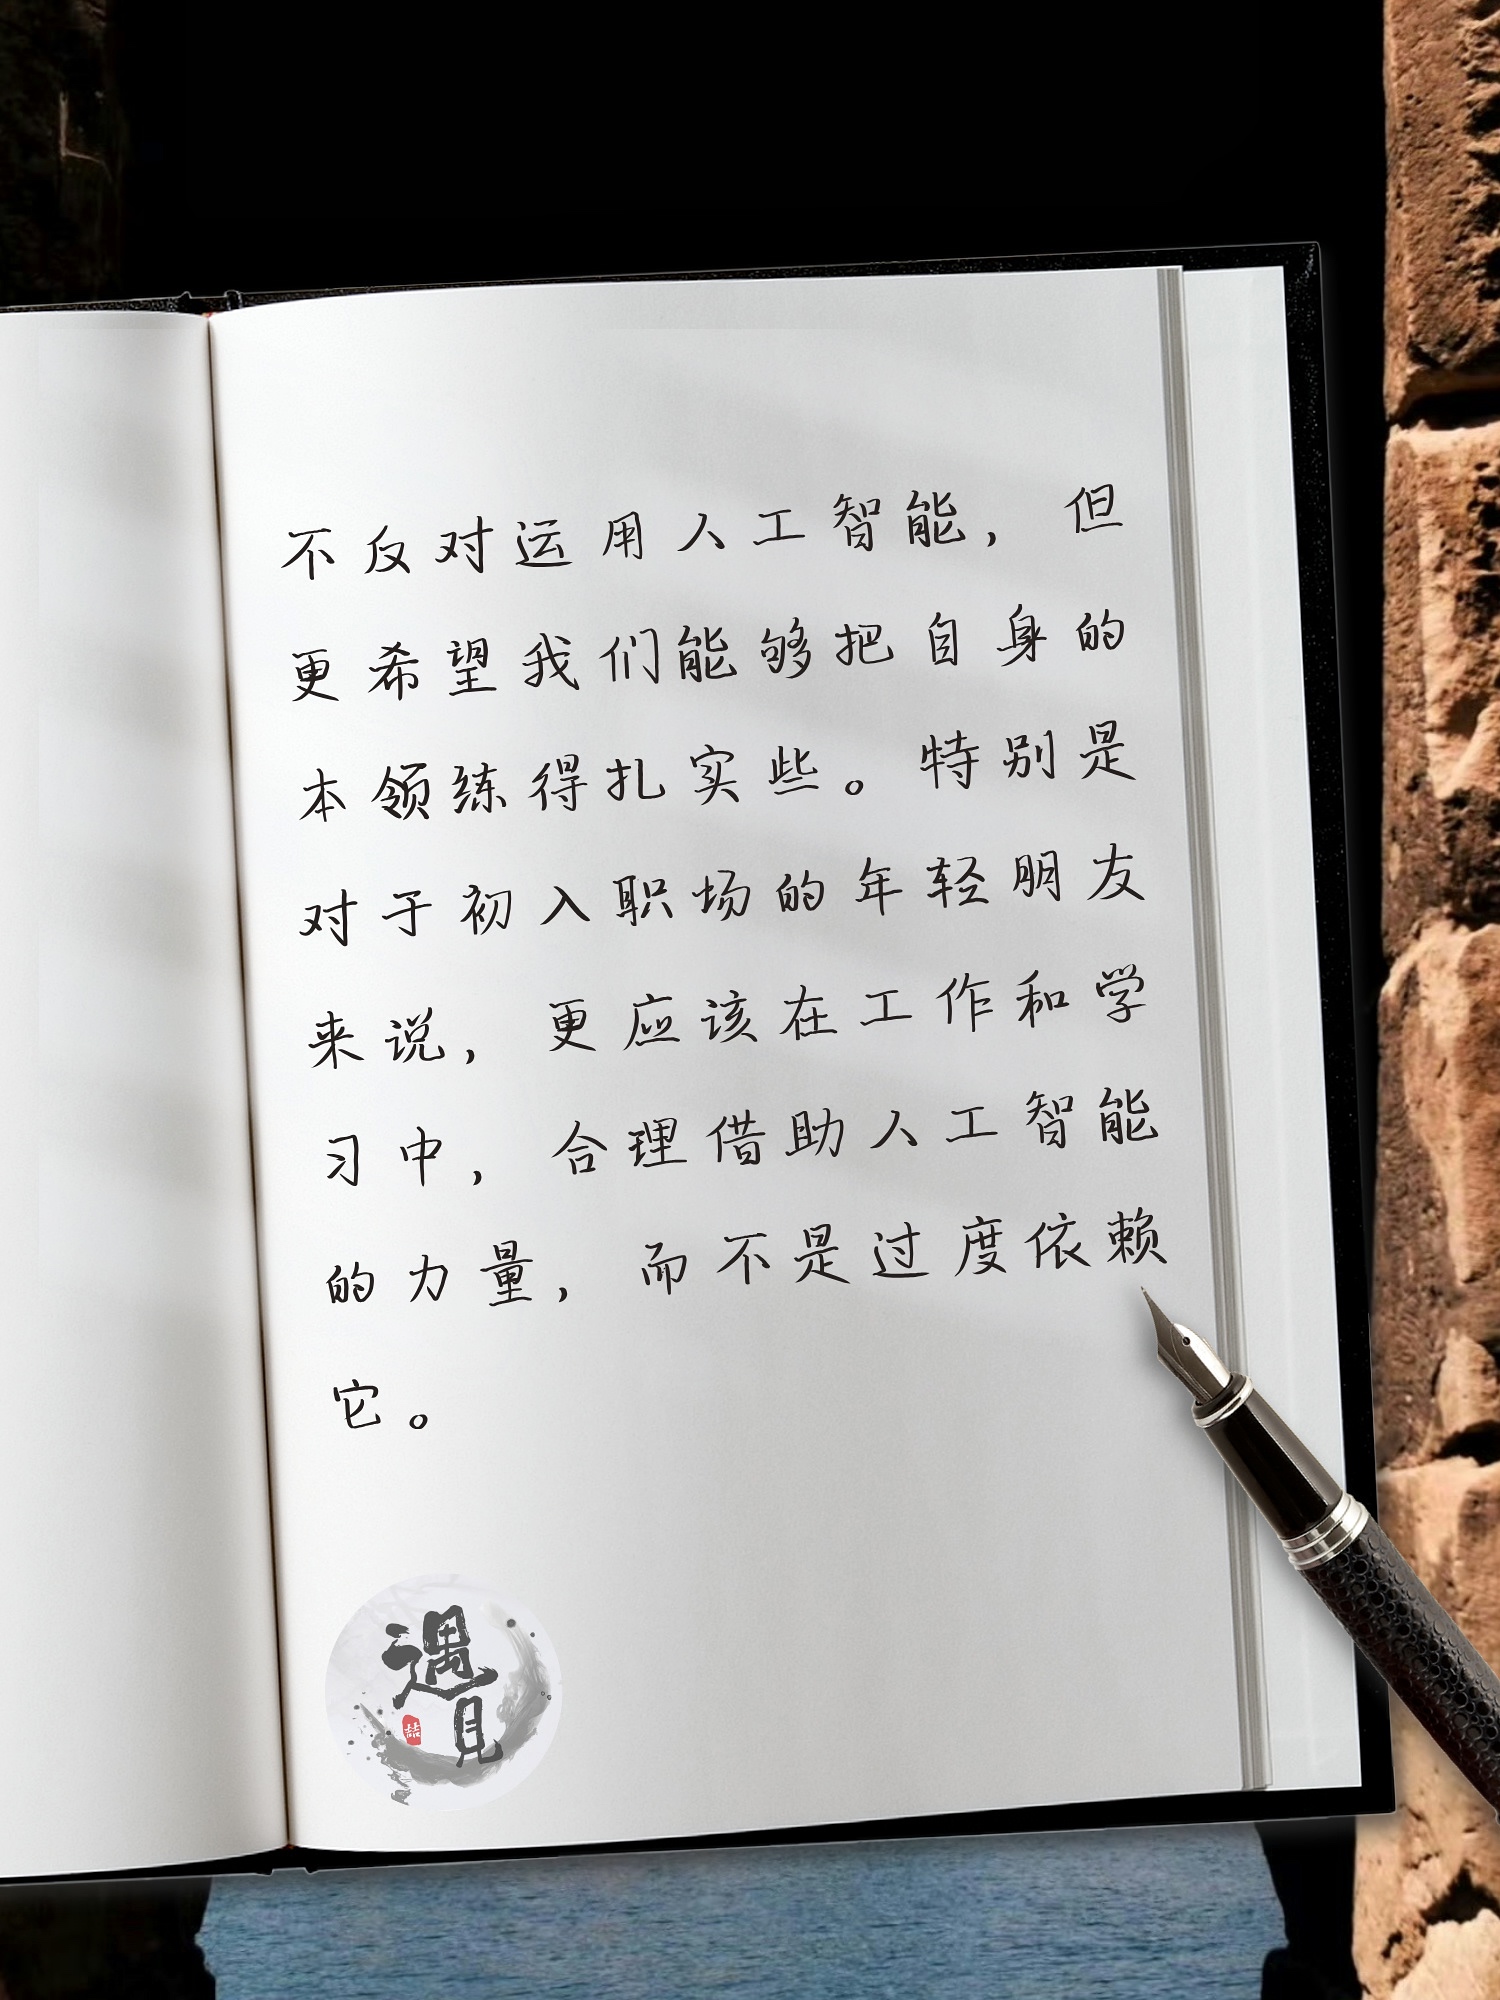 不反对运用人工智能，但
更希望我们能够把自身的
本领练得扎实些。特别是
对于初入职场的年轻朋友
来说，更应该在工作和学
习中，合理借助人工智能
的力量，而不是过度依赖
它。
遇
見
喆